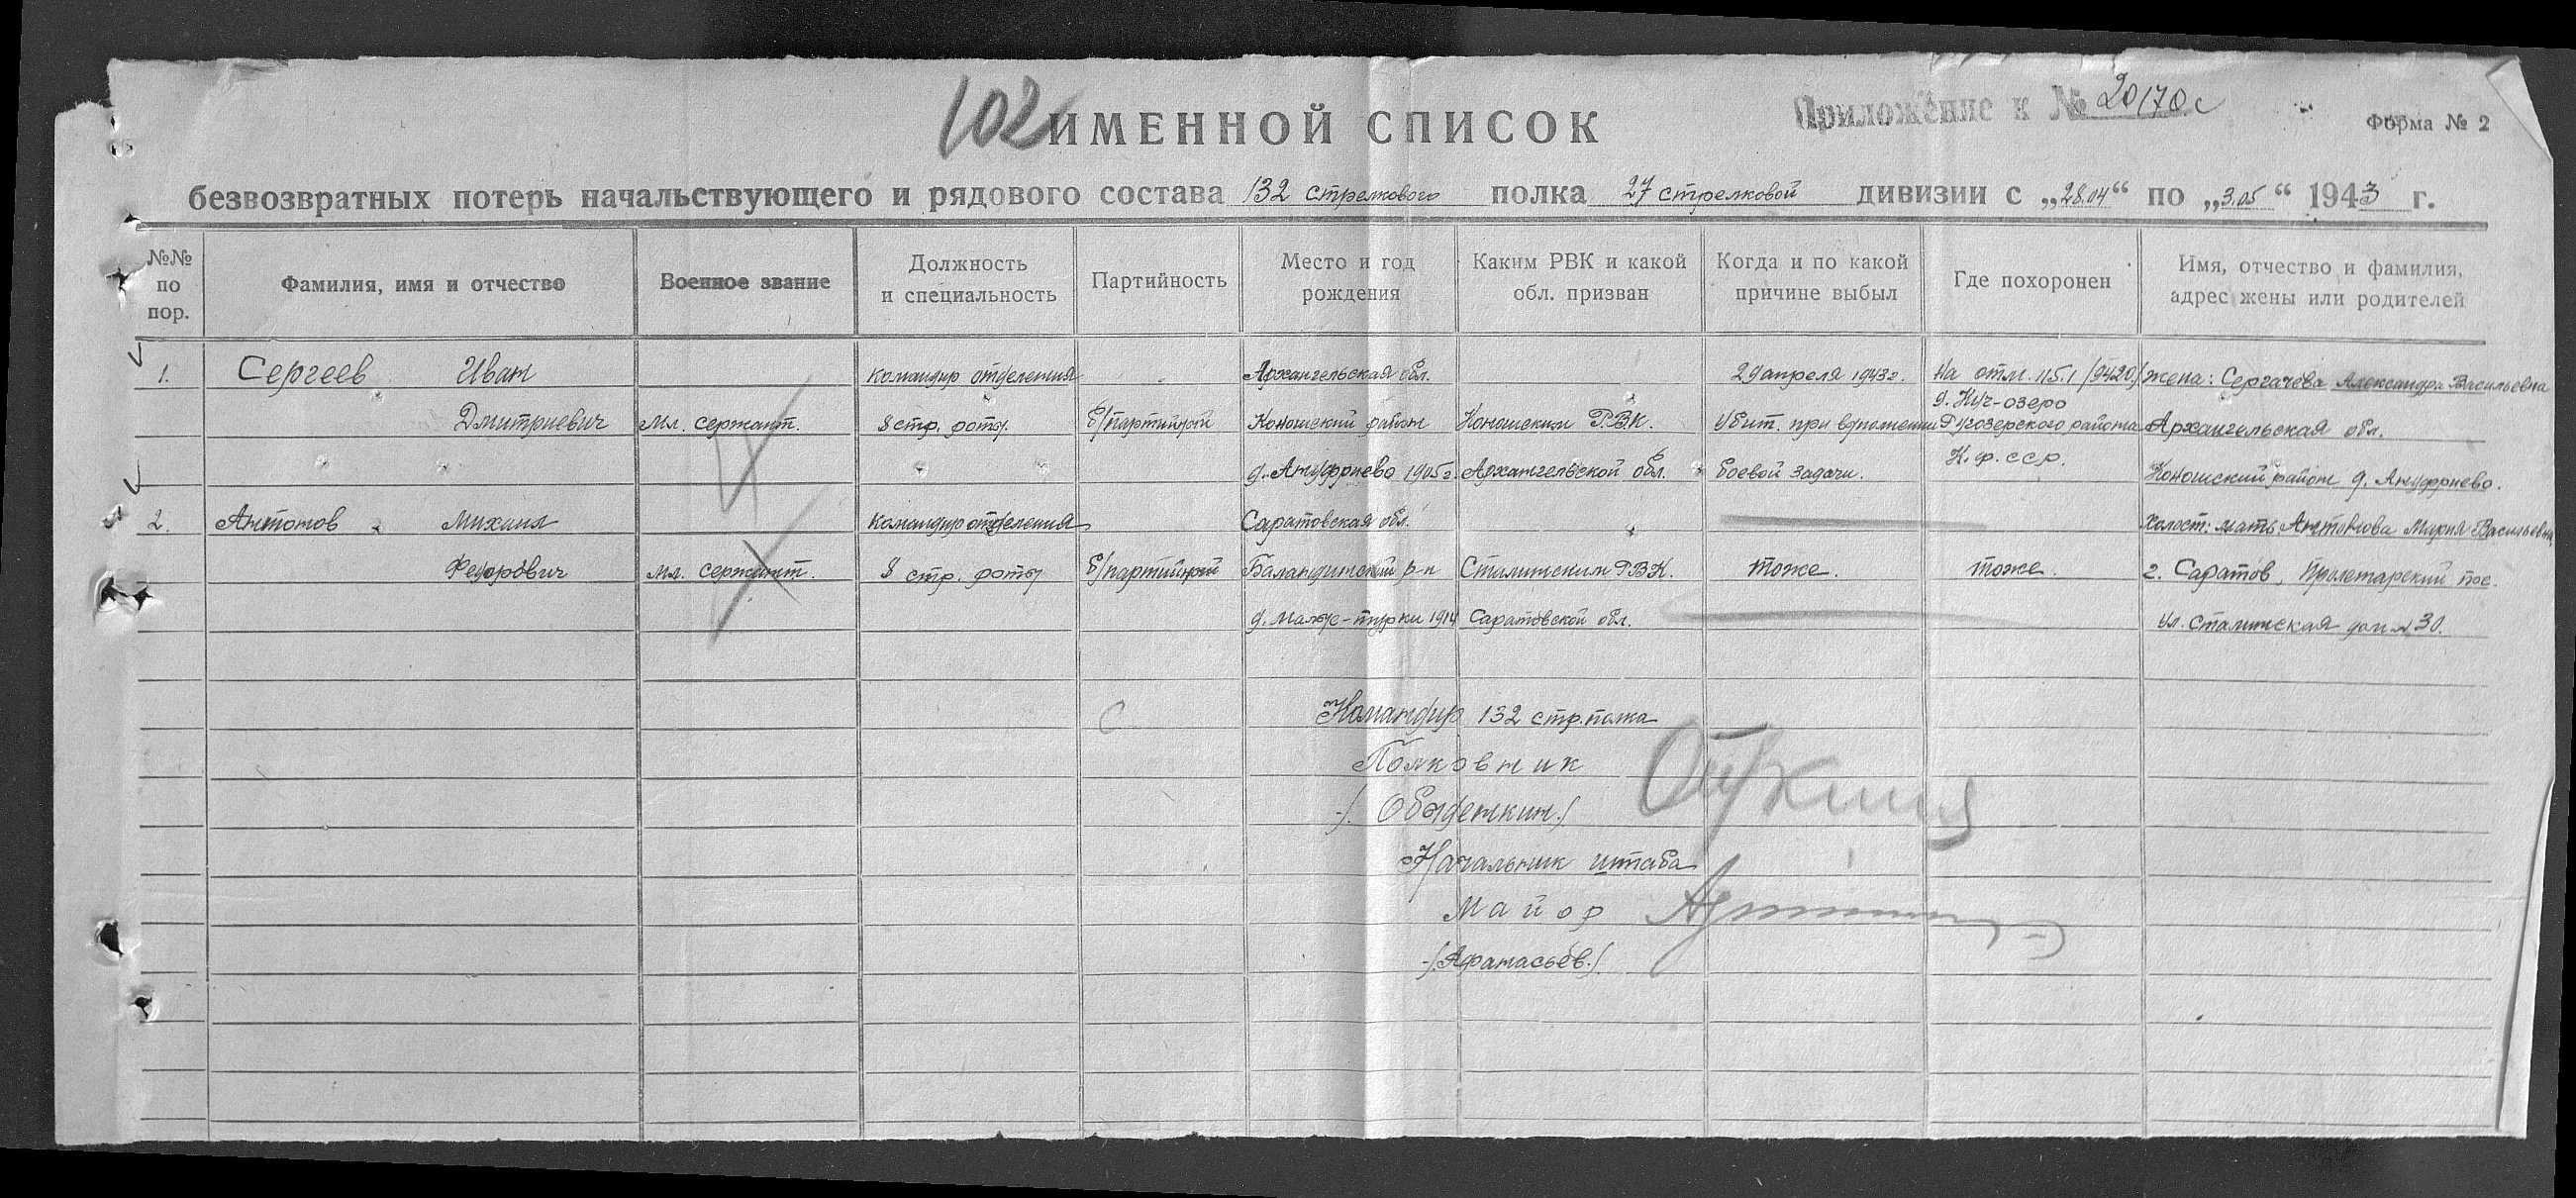 102 ИМЕННОЙ СПИСОК
Приложение к № 20170с
Форма № 2
безвозвратных потерь начальствующего и рядового состава 132 стрелкового полка 27 стрелковой дивизии с „28.04“ по „3.05“ 1943 г.
№№ по пор.
Фамилия, имя и отчество
Военное звание
Должность и специальность
Партийность
Место и год рождения
Каким РВК и какой обл. призван
Когда и по какой причине выбыл
Где похоронен
Имя, отчество и фамилия, адрес жены или родителей
1. Сергеев Иван командир отделения Архангельская обл. 29 апреля 1943г. На отм. 115.1 /9420/ жена: Сергачева Александра Васильевна
д. Куч-озеро
Дмитриевич мл. сержант. 8 стр. роты. б/партийный Коношский район Коношским РВК. Убит. при выполнении Ругозерского района Архангельская обл.
д. Ануфриево 1905г. Архангельской обл. боевой задачи. К.ф.сср. Коношский район д. Ануфриево.
2. Антонов Михаил командир отделения Саратовская обл. Холост: мать Антонова Мария Васильевна,
Федорович мл. сержант. 8 стр. роты б/партийный Баландинский р-н Сталинским РВК. тоже. тоже. г. Саратов, Пролетарский пос.
1914 Саратовской обл. ул. Сталинская дом № 30.
Командир 132 стр. полка
Полковник
/. Обыденкин/
Начальник штаба
Майор
/.Афанасьев./